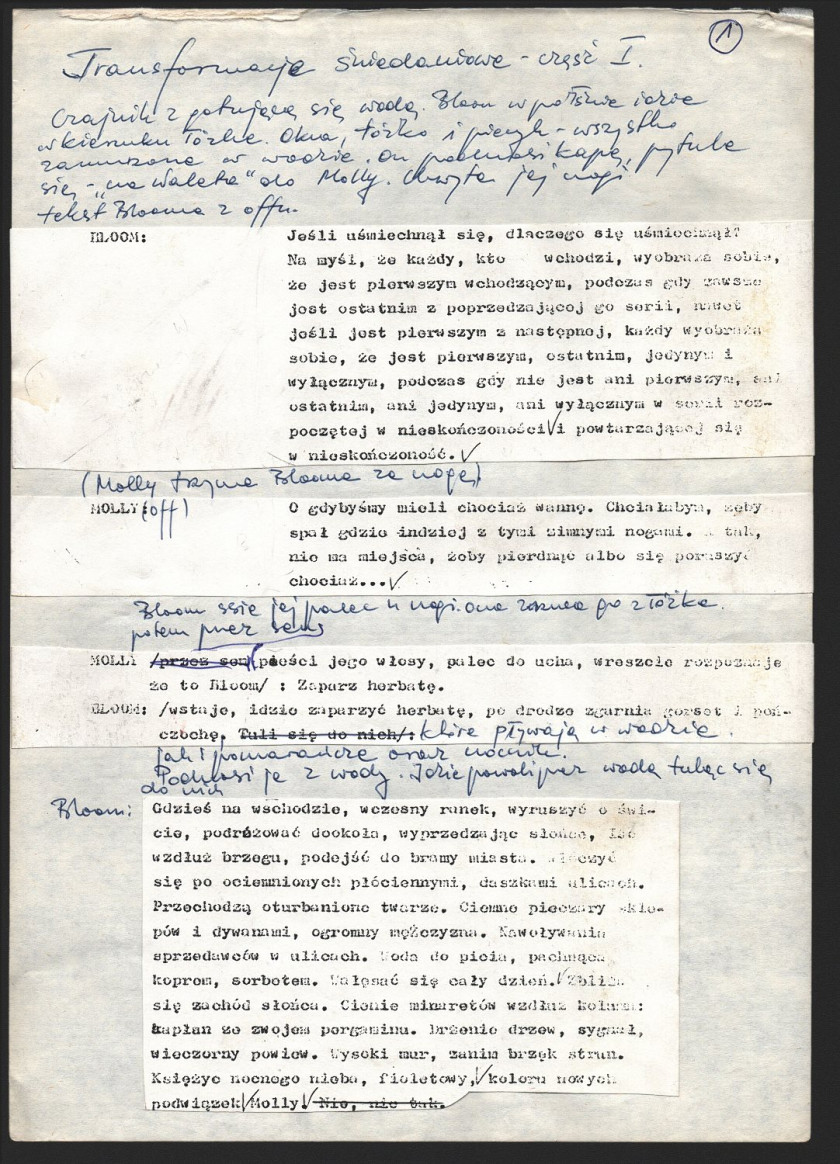 1
Transformacje śniedaniowe - część I.
Czajnik z gotującą się wodą. Bloom w półśnie idzie
w kierunku łóżka. Okna, łóżko i piecyk - wszystko
zanurzone w wodzie. On podnosi kapę, pytula
się - "na waleta" do Molly. Chwyta jej nogi
tekst Blooma z offu.
BLOOM: Jeśli uśmiechnął się, dlaczego się uśmiechnął?
Na myśl, że każdy, kto wchodzi, wyobraża sobie,
że jest pierwszym wchodzącym, podczas gdy zawsze
jest ostatnim z poprzedzającej go serii, nawet
jeśli jest pierwszym z następnej, każdy wyobraża
sobie, że jest pierwszym, ostatnim, jedynym i
wyłącznym, podczas gdy nie jest ani pierwszym, ani
ostatnim, ani jedynym, ani wyłącznym w serii roz-
poczętej w nieskończoności i powtarzającej się
w nieskończoność.
(Molly trzyma Blooma za nogę)
MOLLY: (off) O gdybyśmy mieli chociaż wannę. Chciałabym, żeby
spał gdzie indziej z tymi zimnymi nogami. tak,
nie ma miejsca, żeby pierdnąć albo się poruszyć
chociaż...
Bloom ssie jej palec u nogi. Ona zrzuca go z łóżka.
potem przez sen
MOLLY /przez sen/ pieści jego włosy, palec do ucha, wreszcie rozpoznaje
że to Bloom/ : Zaparz herbatę.
BLOOM: /wstaje, idzie zaparzyć herbatę, po drodze zgarnia gorset i poń-
czochę. Tuli się do nich/: które pływają w wodzie.
jak i pomarańcze oraz nocnik.
Podnosi je z wody. Idzie powoli przez wodę tuląc się
do nich
Bloom: Gdzieś na wschodzie, wczesny ranek, wyruszyć o świ-
cie, podróżować dookoła, wyprzedzając słońce, Iść
wzdłuż brzegu, podejść do bramy miasta. Włóczyć
się po ociemnionych płóciennymi, daszkami ulicach.
Przechodzą oturbanione twarze. Ciemne pieczary skle-
pów i dywanami, ogromny mężczyzna. Nawoływania
sprzedawców w ulicach. Woda do picia, pachnąca
koprem, sorbetem. Wałęsać się cały dzień. Zbliża
się zachód słońca. Cienie minaretów wzdłuż kolumn:
kapłan ze zwojem pergaminu. Drżenie drzew, sygnał,
wieczorny powiew. Wysoki mur, zanim brzęk strun.
Księżyc nocnego nieba, fioletowy, koloru nowych
podwiązek Molly. Nie, nie tak.